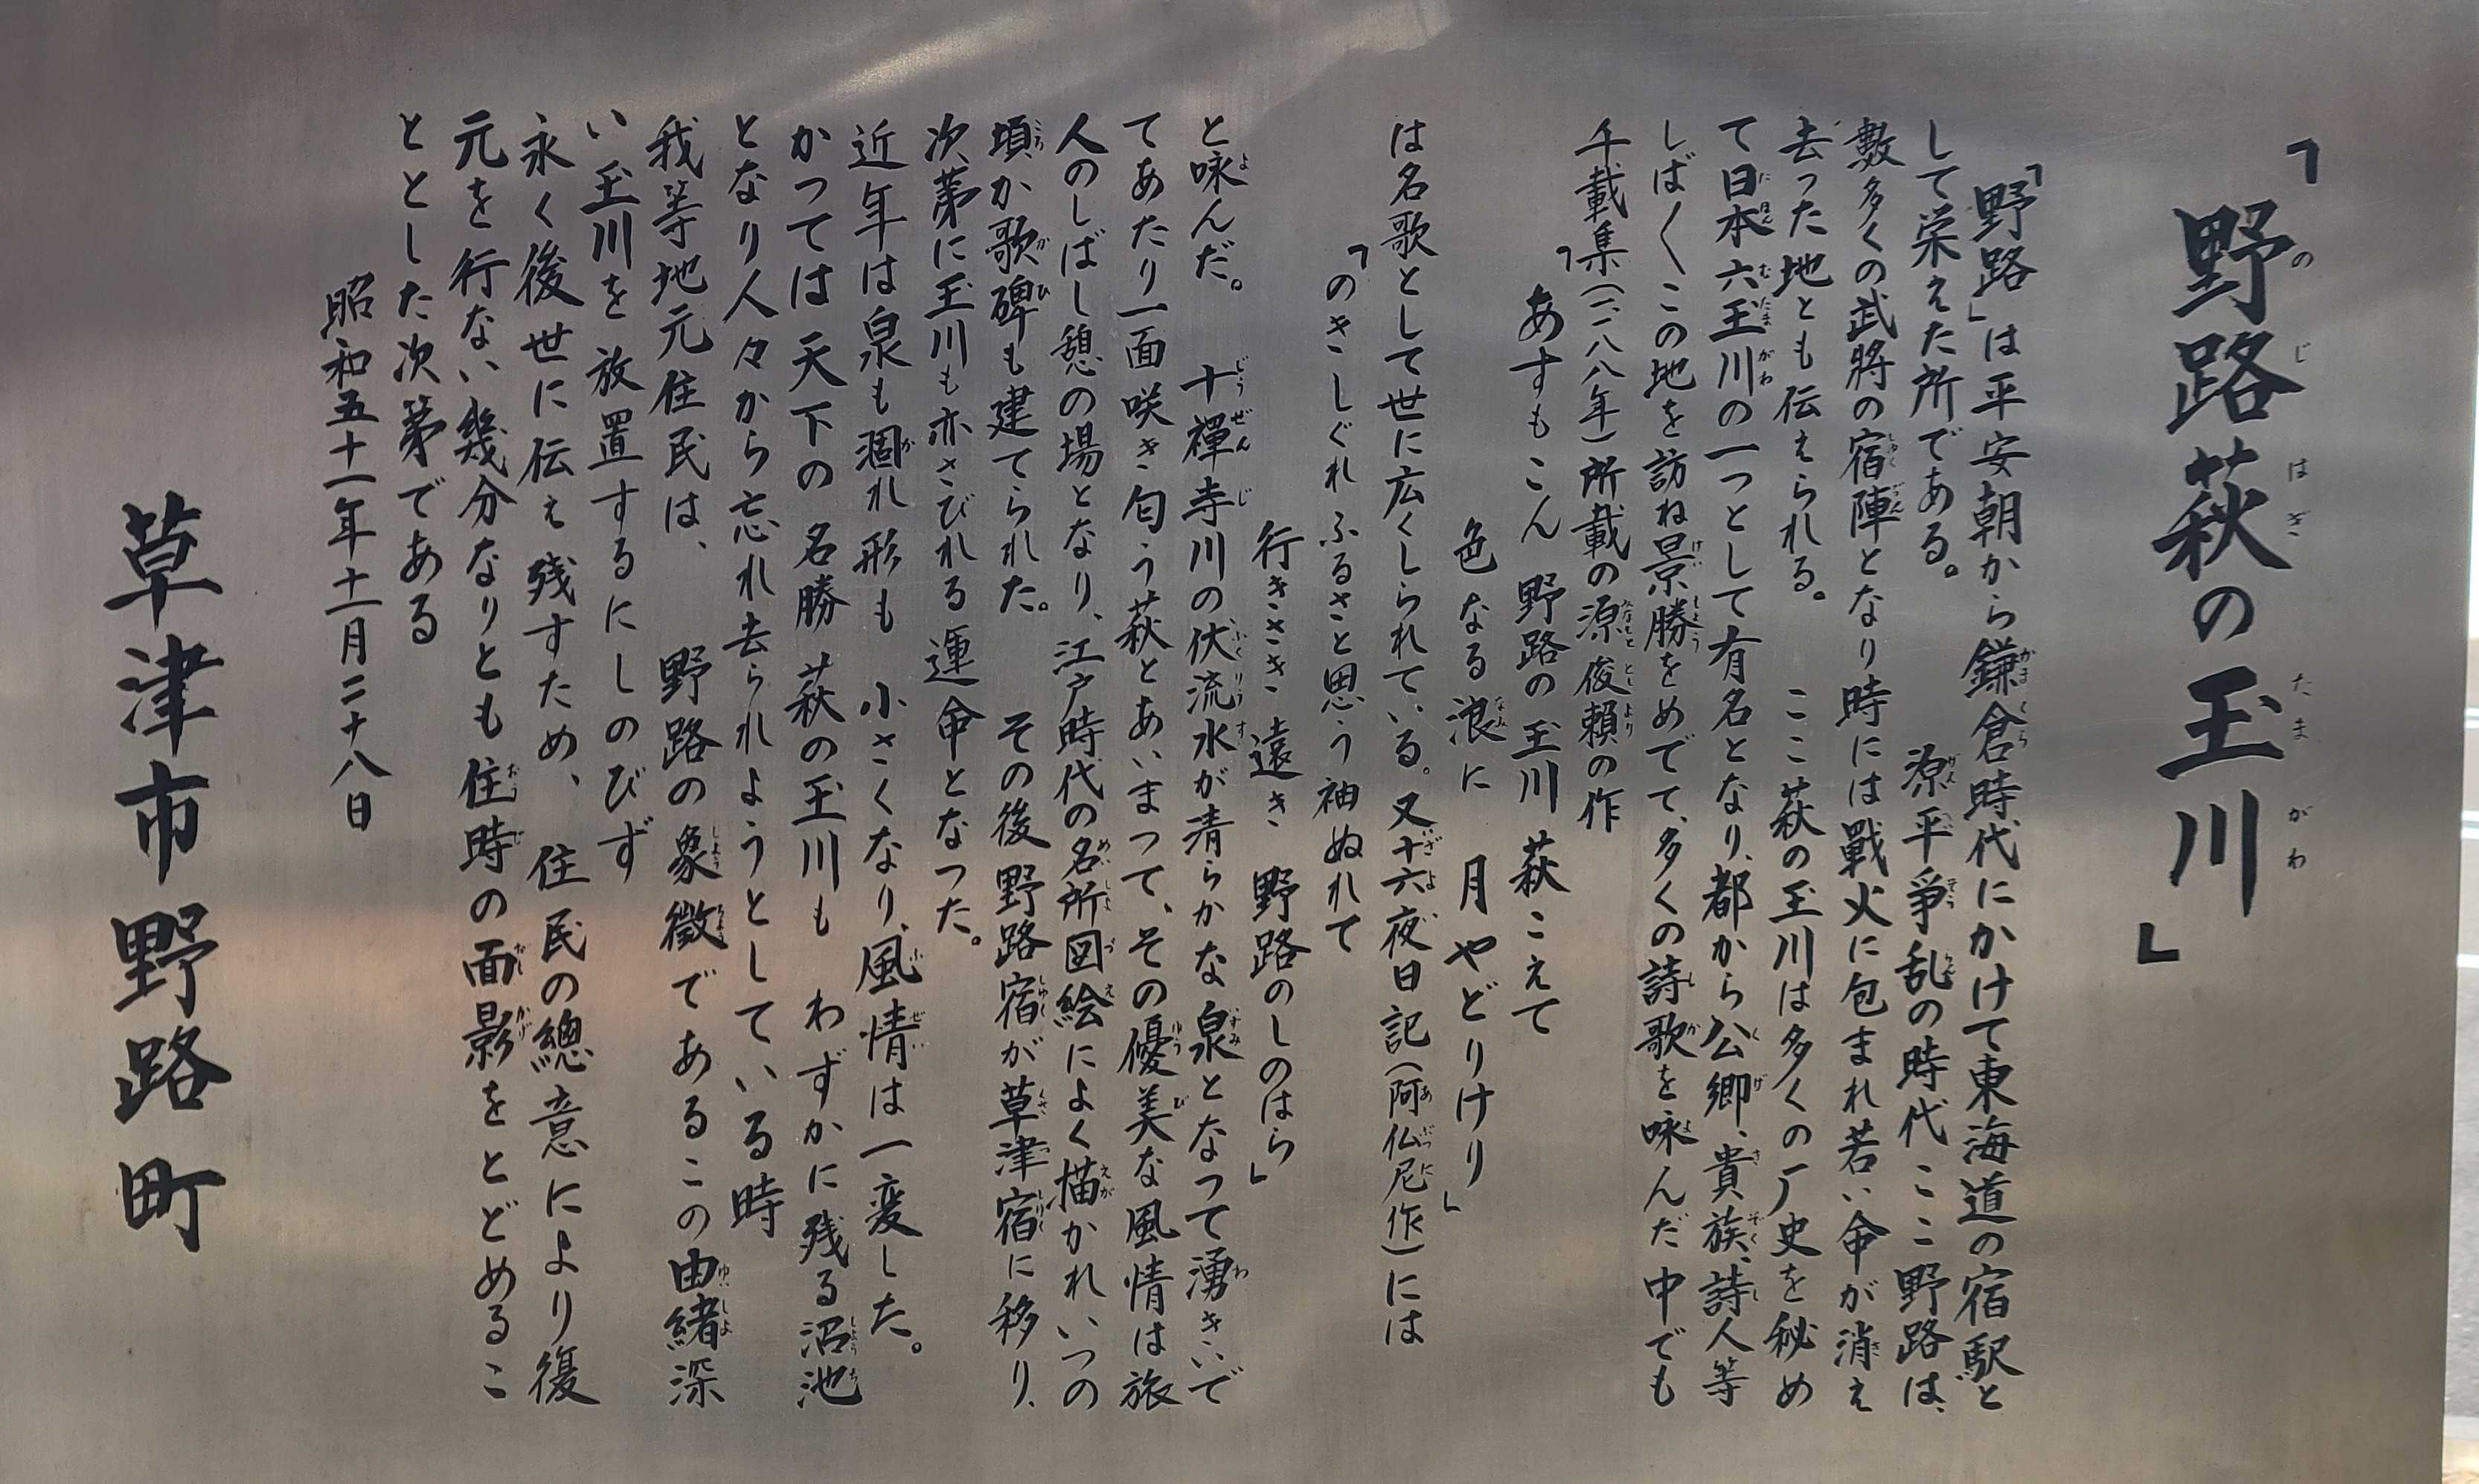 「野路萩の玉川」
「野路」は平安朝から鎌倉時代にかけて東海道の宿駅と
して栄えた所である。　源平争乱の時代ここ野路は、
數多くの武將の宿陣となり時には戰火に包まれ若い命が消え
去った地とも伝えられる。　ここ萩の玉川は多くの厂史を秘め
て日本六玉川の一つとして有名となり、都から公卿、貴族、詩人等
しば〱この地を訪ね景勝をめでて、多くの詩歌を咏んだ中でも
千載集(一一八八年)所載の源俊頼の作
「あすもこん　野路の玉川　萩こえて
色なる浪に　月やどりけり」
は名歌として世に広くしられている。又十六夜日記(阿仏尼作)には
「のきしぐれ　ふるさと思う　袖ぬれて
行きさき遠き　野路のしのはら」
と咏んだ。　十禅寺川の伏流水が清らかな泉となって湧きいで
てあたり一面咲き匂う萩とあいまって、その優美な風情は旅
人のしばし憩の場となり、江戸時代の名所図絵によく描かれいつの
頃か歌碑も建てられた。　その後野路宿が草津宿に移り、
次第に玉川も亦さびれる運命となった。
近年は泉も涸れ形も　小さくなり、風情は一変した。
かつては天下の名勝　萩の玉川も　わずかに残る沼池
となり人々から忘れ去られようとしている時
我等地元住民は、　野路の象徴であるこの由緒深
い玉川を放置するにしのびず
永く後世に伝え残すため、　住民の總意により復
元を行ない幾分なりとも往時の面影をとどめるこ
ととした次第である
昭和五十一年十一月二十八日
草津市野路町